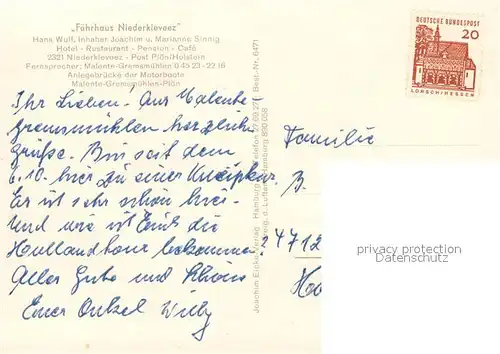 „Fährhaus Niederkleveez"
Hans Wulf, Inhaber Joachim u. Marianne Sinnig
Hotel - Restaurant - Pension - Café
2321 Niederkleveez - Post Plön/Holstein
Fernsprecher: Malente-Gremsmühlen 0 45 23 - 22 16
Anlegebrücke der Motorboote
Malente-Gremsmühlen-Plön
Ihr Lieben! Aus Malente
Gremsmühlen herzliche
Grüße. Bin seit dem
6.10. hier zu einer Kneippkur.
Es ist sehr schön hier.
Und wie ist Euch die
Hollandtour bekommen?
Alles Gute und
Euer Onkel Willy
Joachim Eicke Verlag Hamburg Telefon
Best.-Nr. 6471
DEUTSCHE BUNDESPOST
20
LORSCH/HESSEN
Familie
B.
4712
privacy protection
Datenschutz